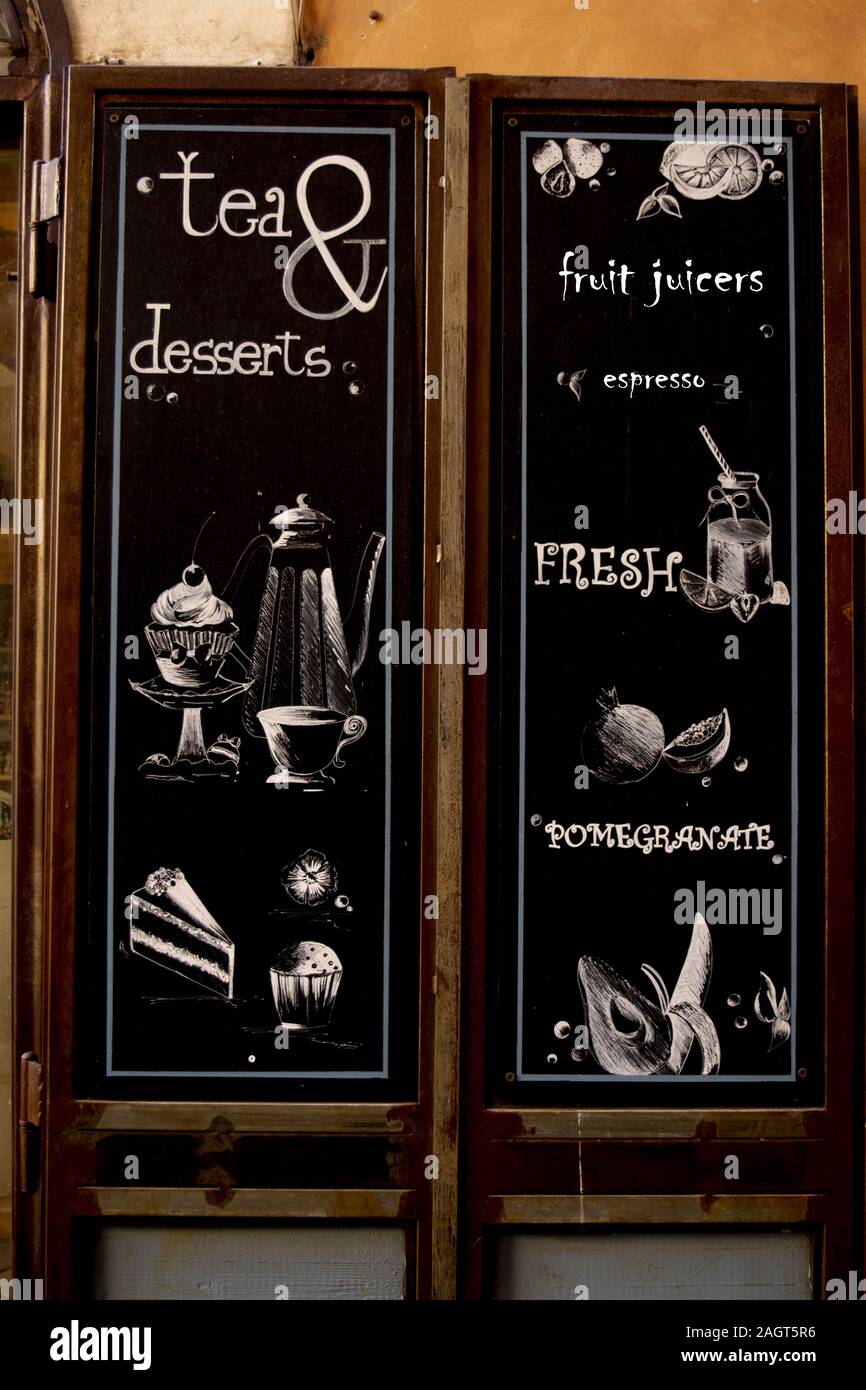 tea &
desserts
fruit juicers
espresso
FRESH
POMEGRANATE
alamy
Image ID: 2AGT5R6
www.alamy.com